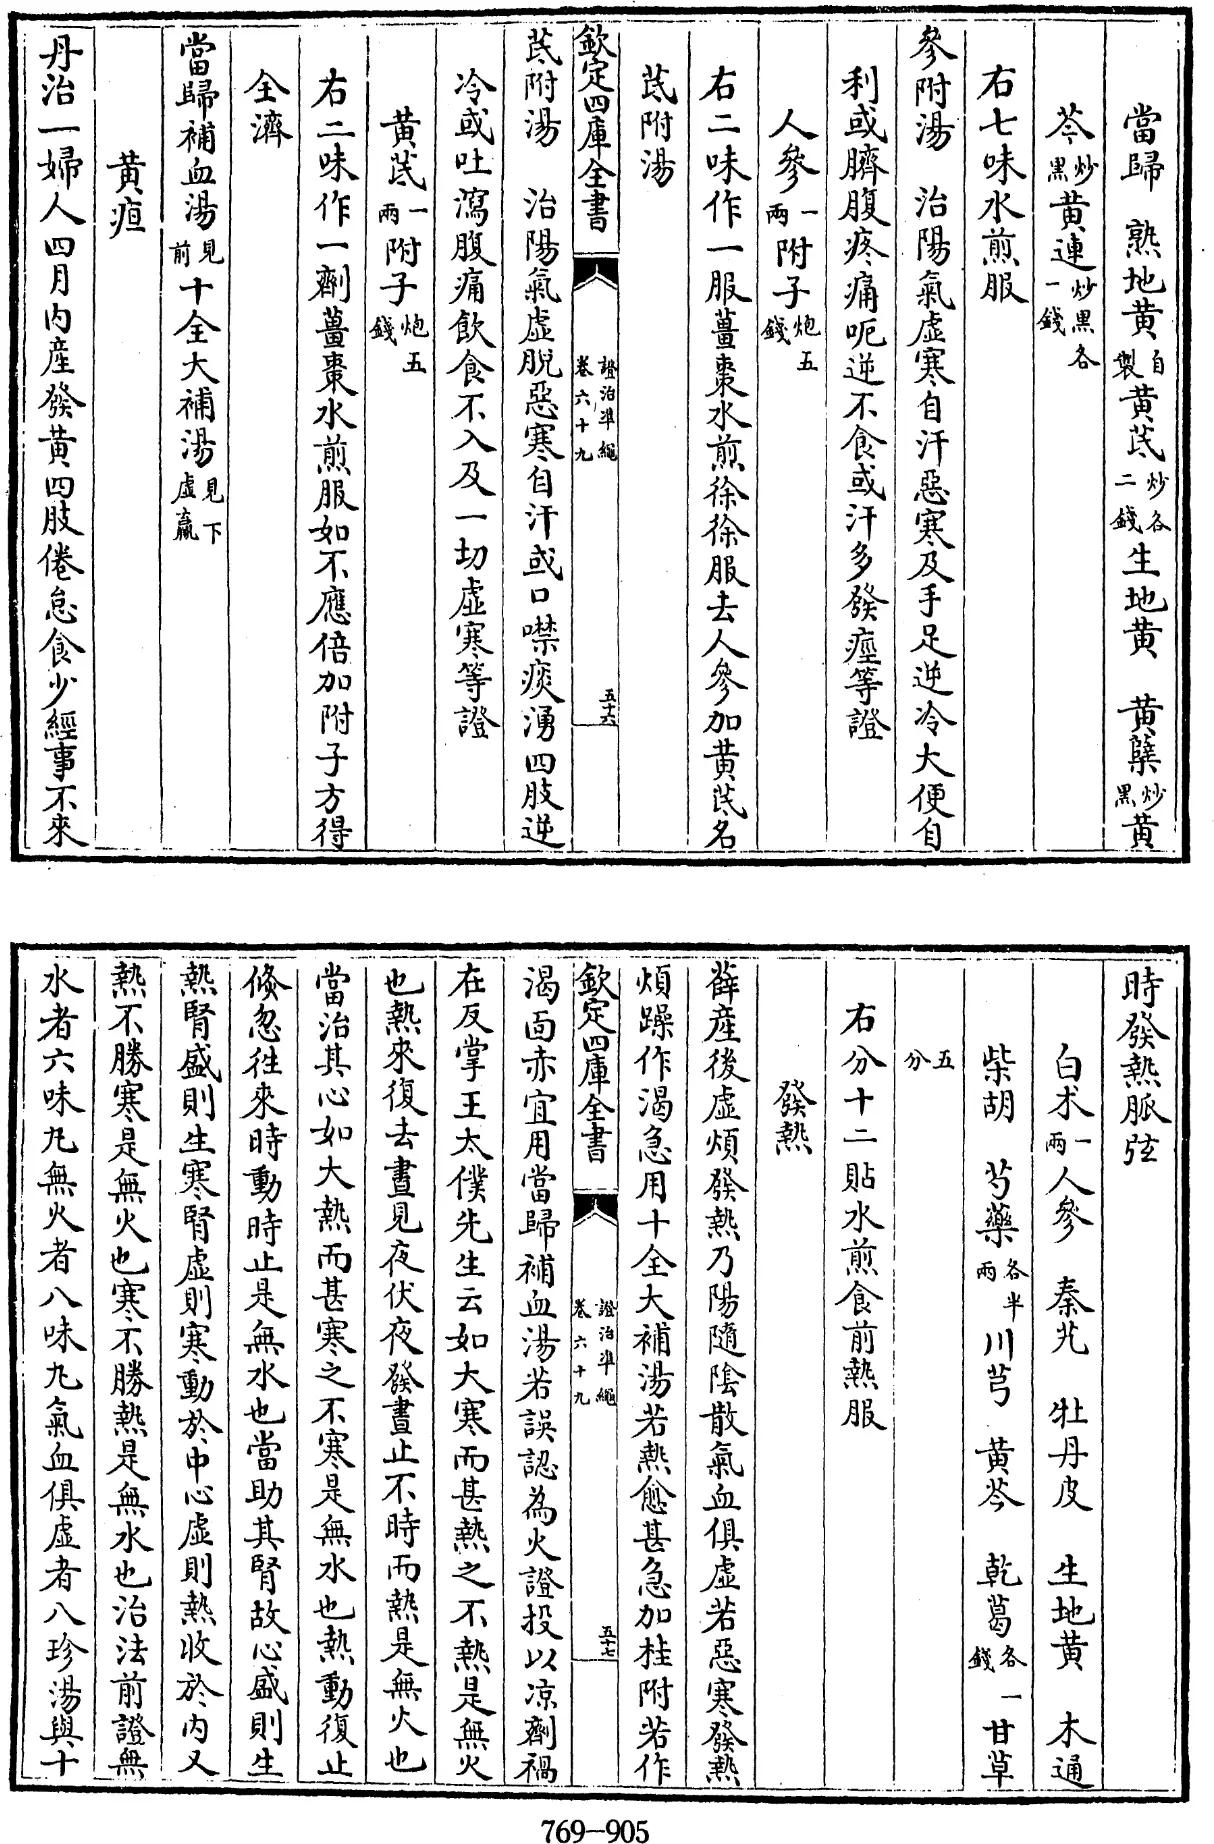 當歸　熟地黄自製黄芪炒各二錢生地黄　黄蘗炒黑黄
芩炒黑黄連炒黑各一錢
右七味水煎服
參附湯　治陽氣虛寒自汗惡寒及手足逆冷大便自
利或臍腹疼痛呃逆不食或汗多發痙等證
人參一兩附子炮五錢
右二味作一服薑棗水煎徐徐服去人參加黄芪名
芪附湯
欽定四庫全書　證治凖繩卷六十九　五十六
芪附湯　治陽氣虛脱惡寒自汗或口噤痰湧四肢逆
冷或吐瀉腹痛飲食不入及一切虛寒等證
黄芪一兩附子炮五錢
右二味作一劑薑棗水煎服如不應倍加附子方得
全濟
當歸補血湯見前十全大補湯見下虛羸
黄疸
丹治一婦人四月内產發黄四肢倦怠食少經事不來
時發熱脈弦
白术一兩人參　秦艽　牡丹皮　生地黄　木通
柴胡　芍藥各半兩川芎　黄芩　乾葛各一錢甘草
五分
右分十二貼水煎食前熱服
發熱
薛產後虛煩發熱乃陽隨陰散氣血俱虛若惡寒發熱
煩躁作渴急用十全大補湯若熱愈甚急加桂附若作
欽定四庫全書　證治凖繩卷六十九　五十七
渴面赤宜用當歸補血湯若誤認為火證投以凉劑禍
在反掌王太僕先生云如大寒而甚熱之不熱是無火
也熱來復去晝見夜伏夜發晝止不時而熱是無火也
當治其心如大熱而甚寒之不寒是無水也熱動復止
倐忽往來時動時止是無水也當助其腎故心盛則生
熱腎盛則生寒腎虛則寒動於中心虛則熱收於内又
熱不勝寒是無火也寒不勝熱是無水也治法前證無
水者六味丸無火者八味丸氣血俱虛者八珍湯與十
769-905